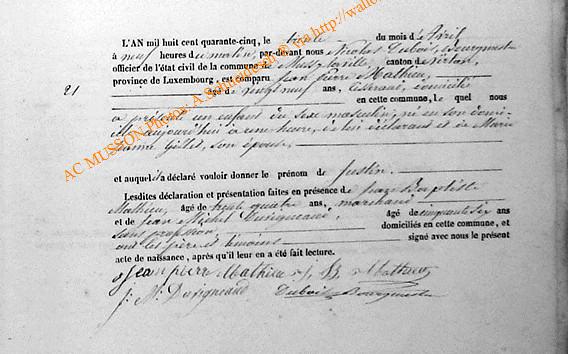 L'AN mil huit cent quarante-cinq, le trente du mois d'Avril
à neuf heures du matin, par-devant nous Nicolas Dubois, Bourgmestre
officier de l'état civil de la commune de Mussy-la-ville, canton de Virton,
province de Luxembourg, est comparu Jean pierre Mathieu,
21
âgé de vingt neuf ans, tisserand, domicilié
en cette commune, le quel nous
a présenté un enfant du sexe masculin, né en son domi-
cile aujourd'hui à une heure, de lui déclarant et de Marie
Jeanne Gillet, son épouse,
et auquel il a déclaré vouloir donner le prénom de Justin.
Lesdites déclaration et présentation faites en présence de Jean Baptiste
Mathieu, âgé de trente quatre ans, marchand
et de Jean Michel Duvigneaud, âgé de cinquante six ans
sans profession, domiciliés en cette commune, et
ont les père et témoins signé avec nous le présent
acte de naissance, après qu'il leur en a été fait lecture.
Jean pierre Mathieu J. B. Mathieu
J. M. Duvigneaud Dubois Bourgmestre
AC MUSSON Photos: A.Schumesch ® via http://wallo